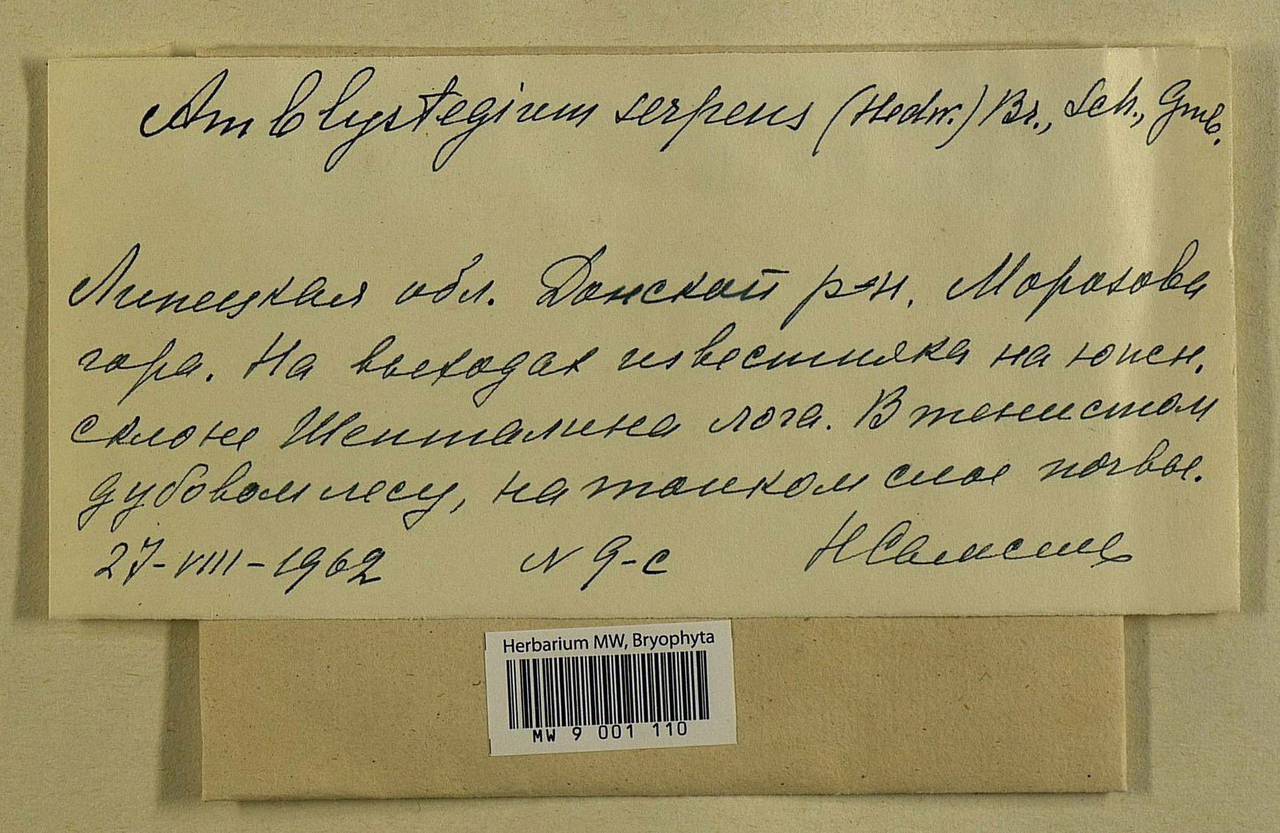 Amblystegium serpens (Hedw.) Br., Sch., Gmb.
Липецкая обл. Донской р-н. Морозова
гора. На выходах известняка на южн.
склоне Шепталина лога. В тенистом
дубовом лесу, на тонком слое почвы.
27-VIII-1962 N 9-с НСамсель
Herbarium MW, Bryophyta
MW 9 001 110